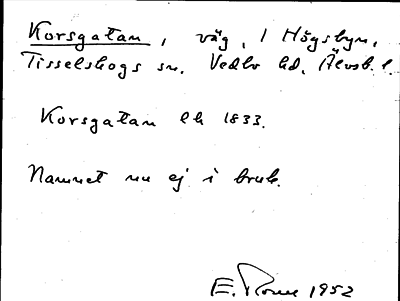 Korsgatan, väg, i Högsbyn,
Tisselskogs sn. Vedbo hd. Älvsb. l.
Korsgatan lh 1833.
Namnet nu ej i bruk.
E. 1952